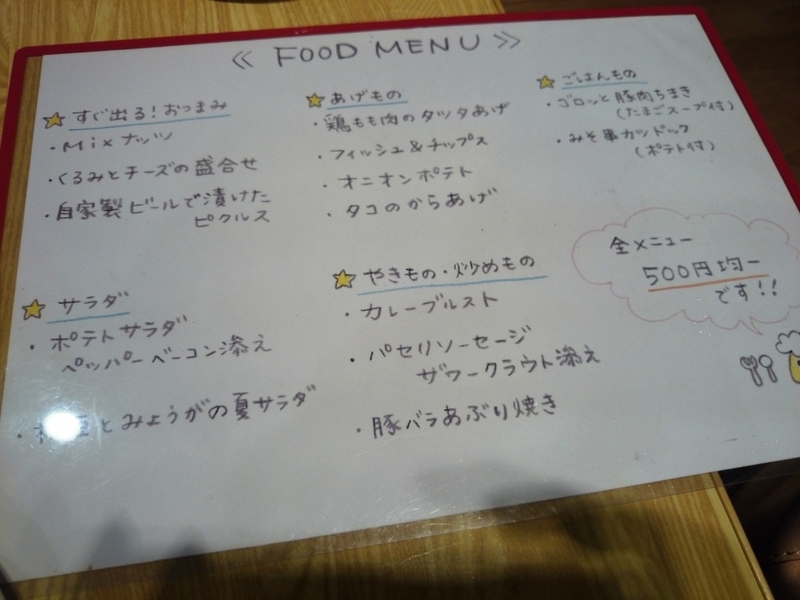 ≪ FOOD MENU ≫
すぐ出る!おつまみ
・Mixナッツ
・くるみとチーズの盛合せ
・自家製ビールで漬けた
ピクルス
サラダ
・ポテトサラダ
ペッパーベーコン添え
とみょうがの夏サラダ
あげもの
・鶏もも肉のタツタあげ
・フィッシュ&チップス
・オニオンポテト
・タコのからあげ
やきもの・炒めもの
・カレーブルスト
・パセリソーセージ
ザワークラウト添え
・豚バラあぶり焼き
ごはんもの
・ゴロッと豚肉ちまき
(たまごスープ付)
・みそ串カツドック
(ポテト付)
全メニュー
500円均一
です!!